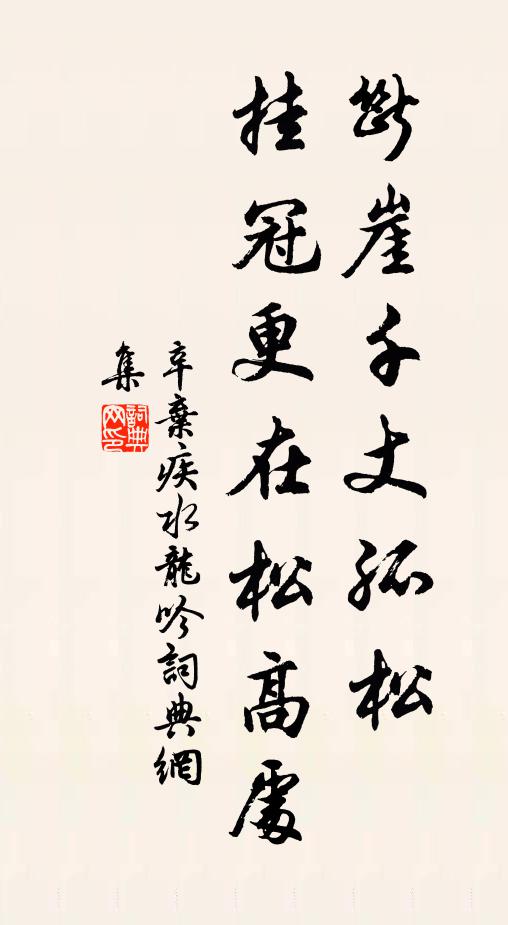 斷崖千丈孤松
挂冠更在松高處
辛棄疾水龍吟詞典網
集
詞典網印